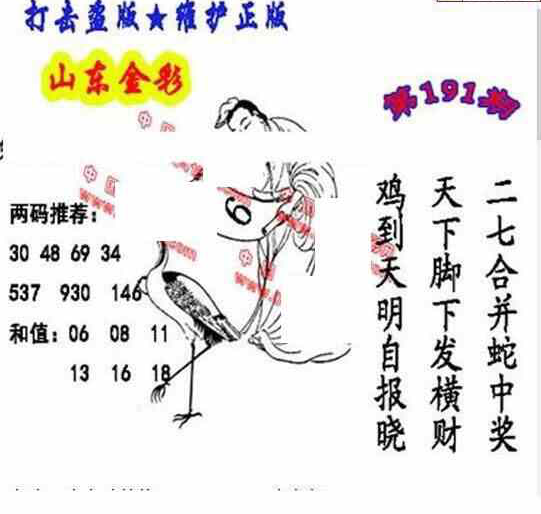 打击盗版★维护正版
山东金彩
第191期
二七合并蛇中奖
天下脚下发横财
鸡到天明自报晓
两码推荐:
30 48 69 34
537 930 146
和值: 06 08 11
13 16 18
6